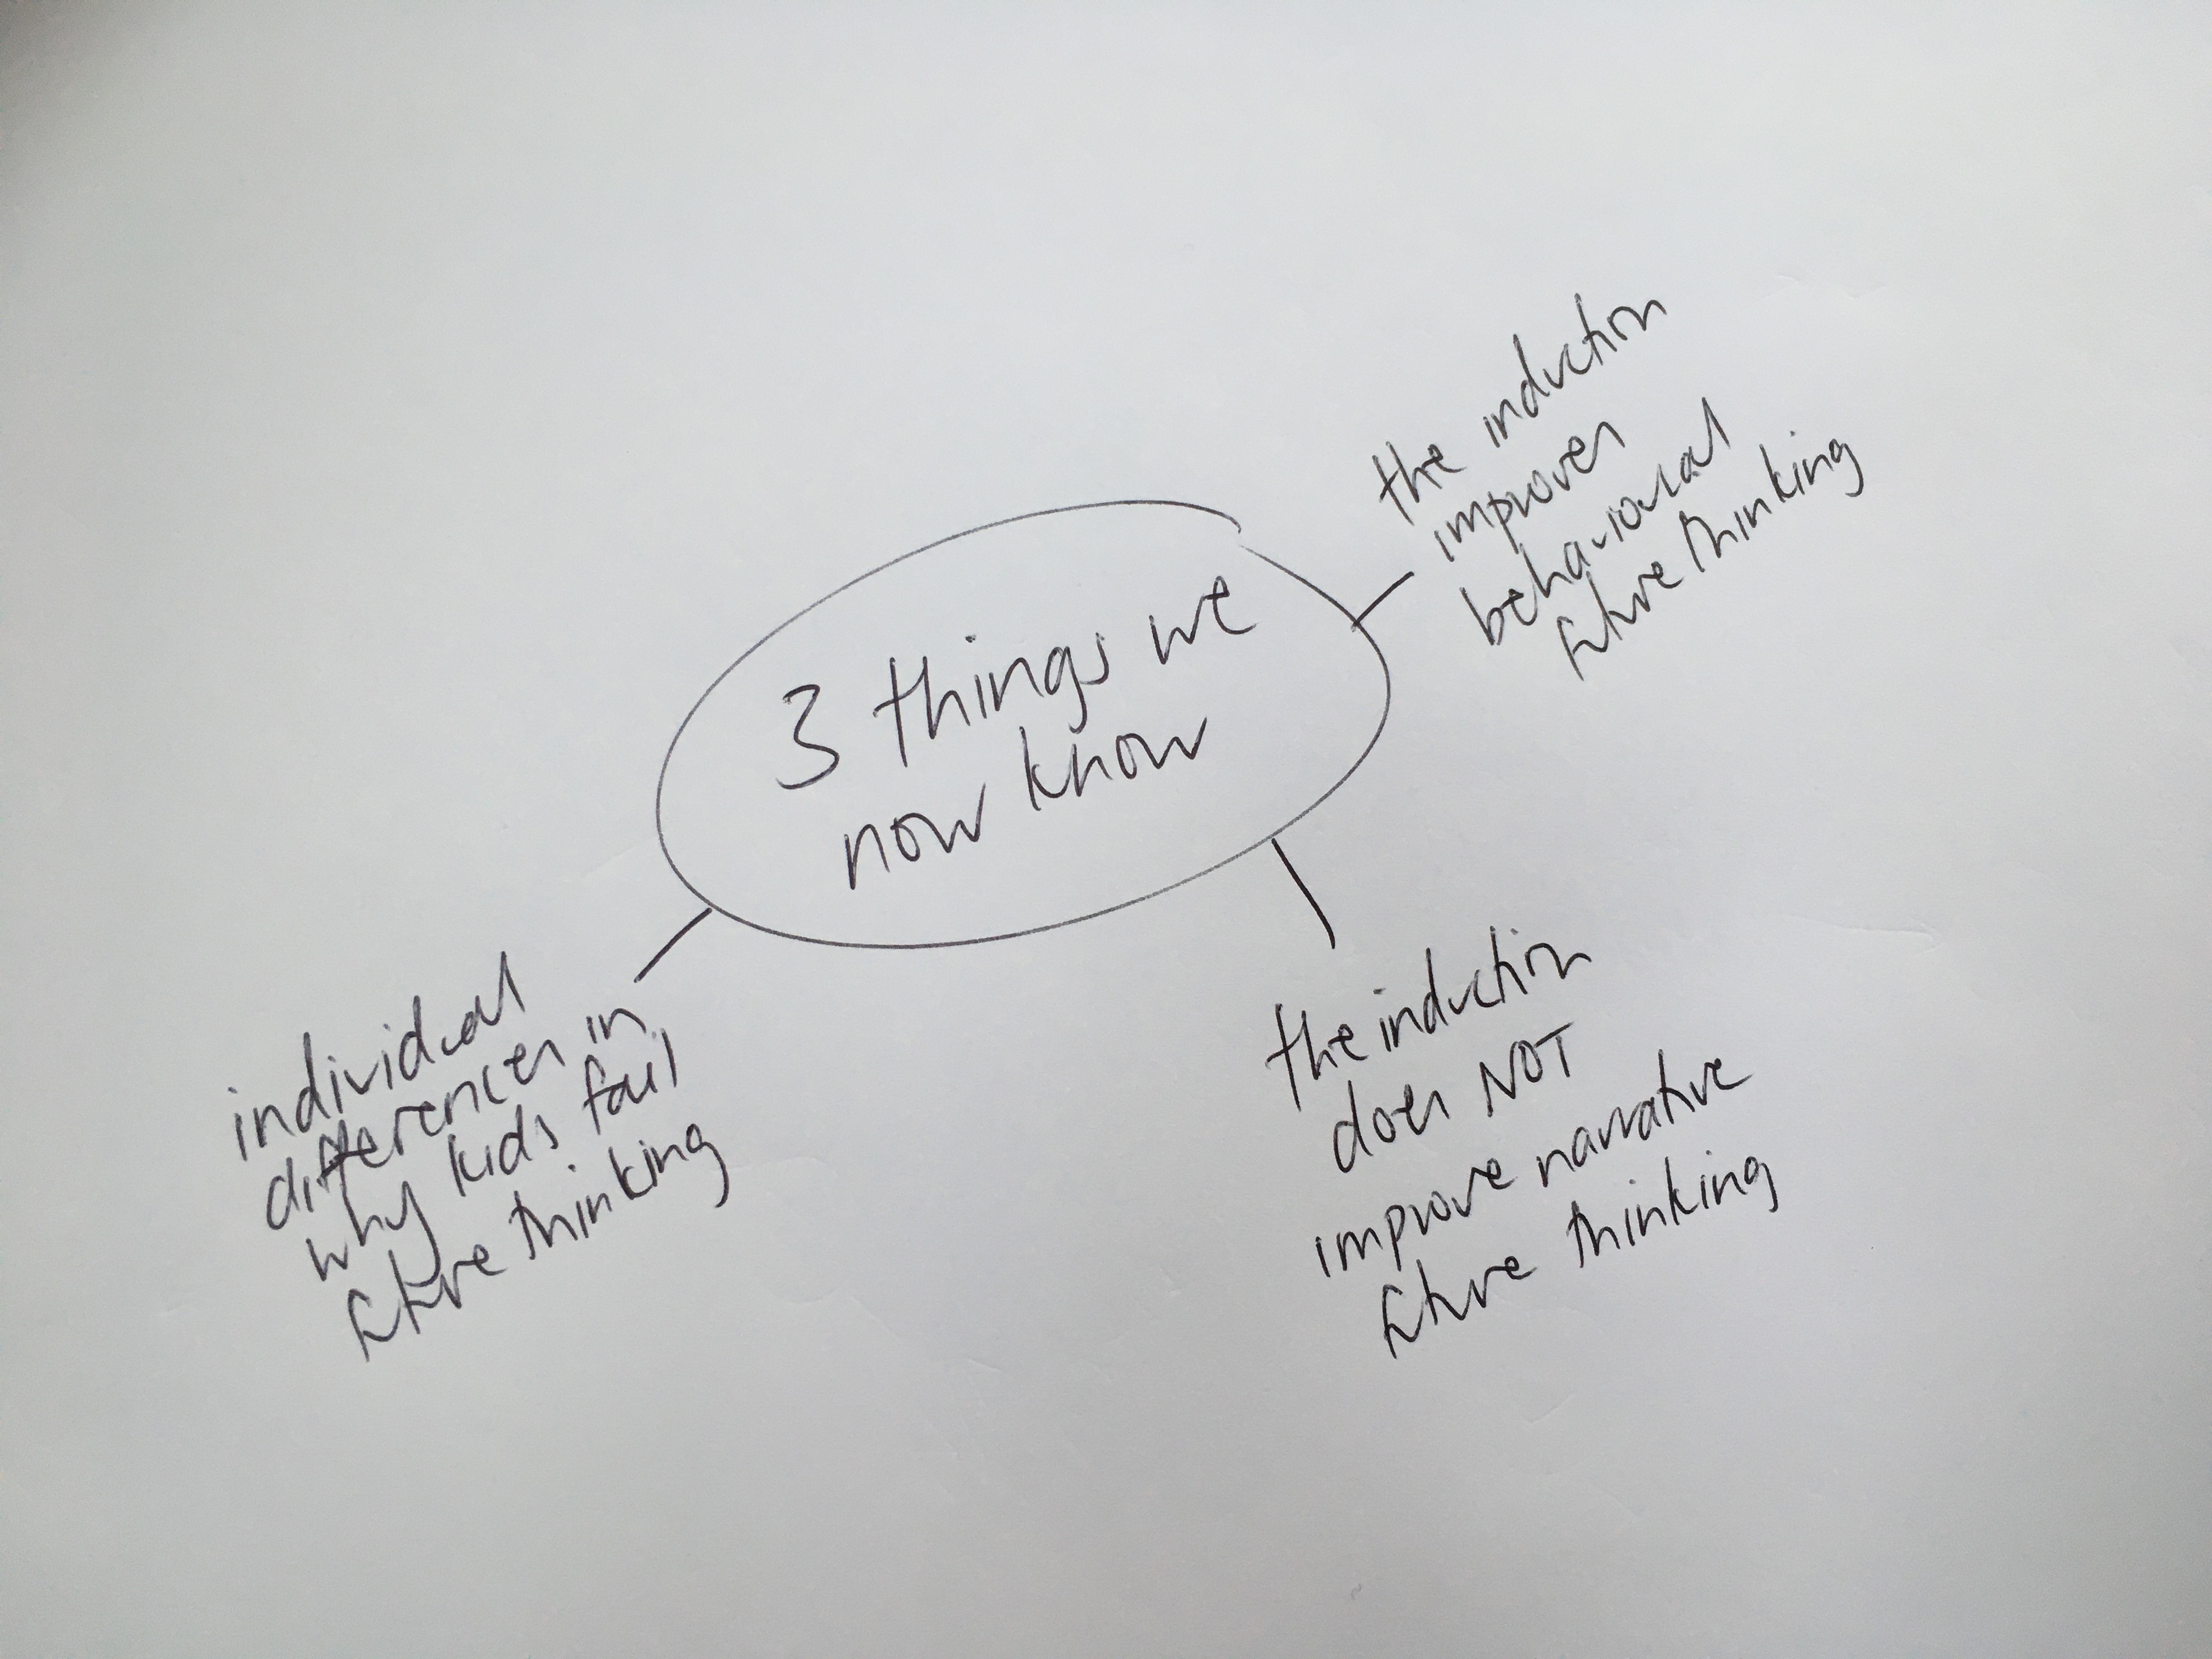 3 things we
now know
the induction
improves
behavioural
future thinking
the induction
does NOT
improve narrative
future thinking
individual
differences in
why kids fail
future thinking